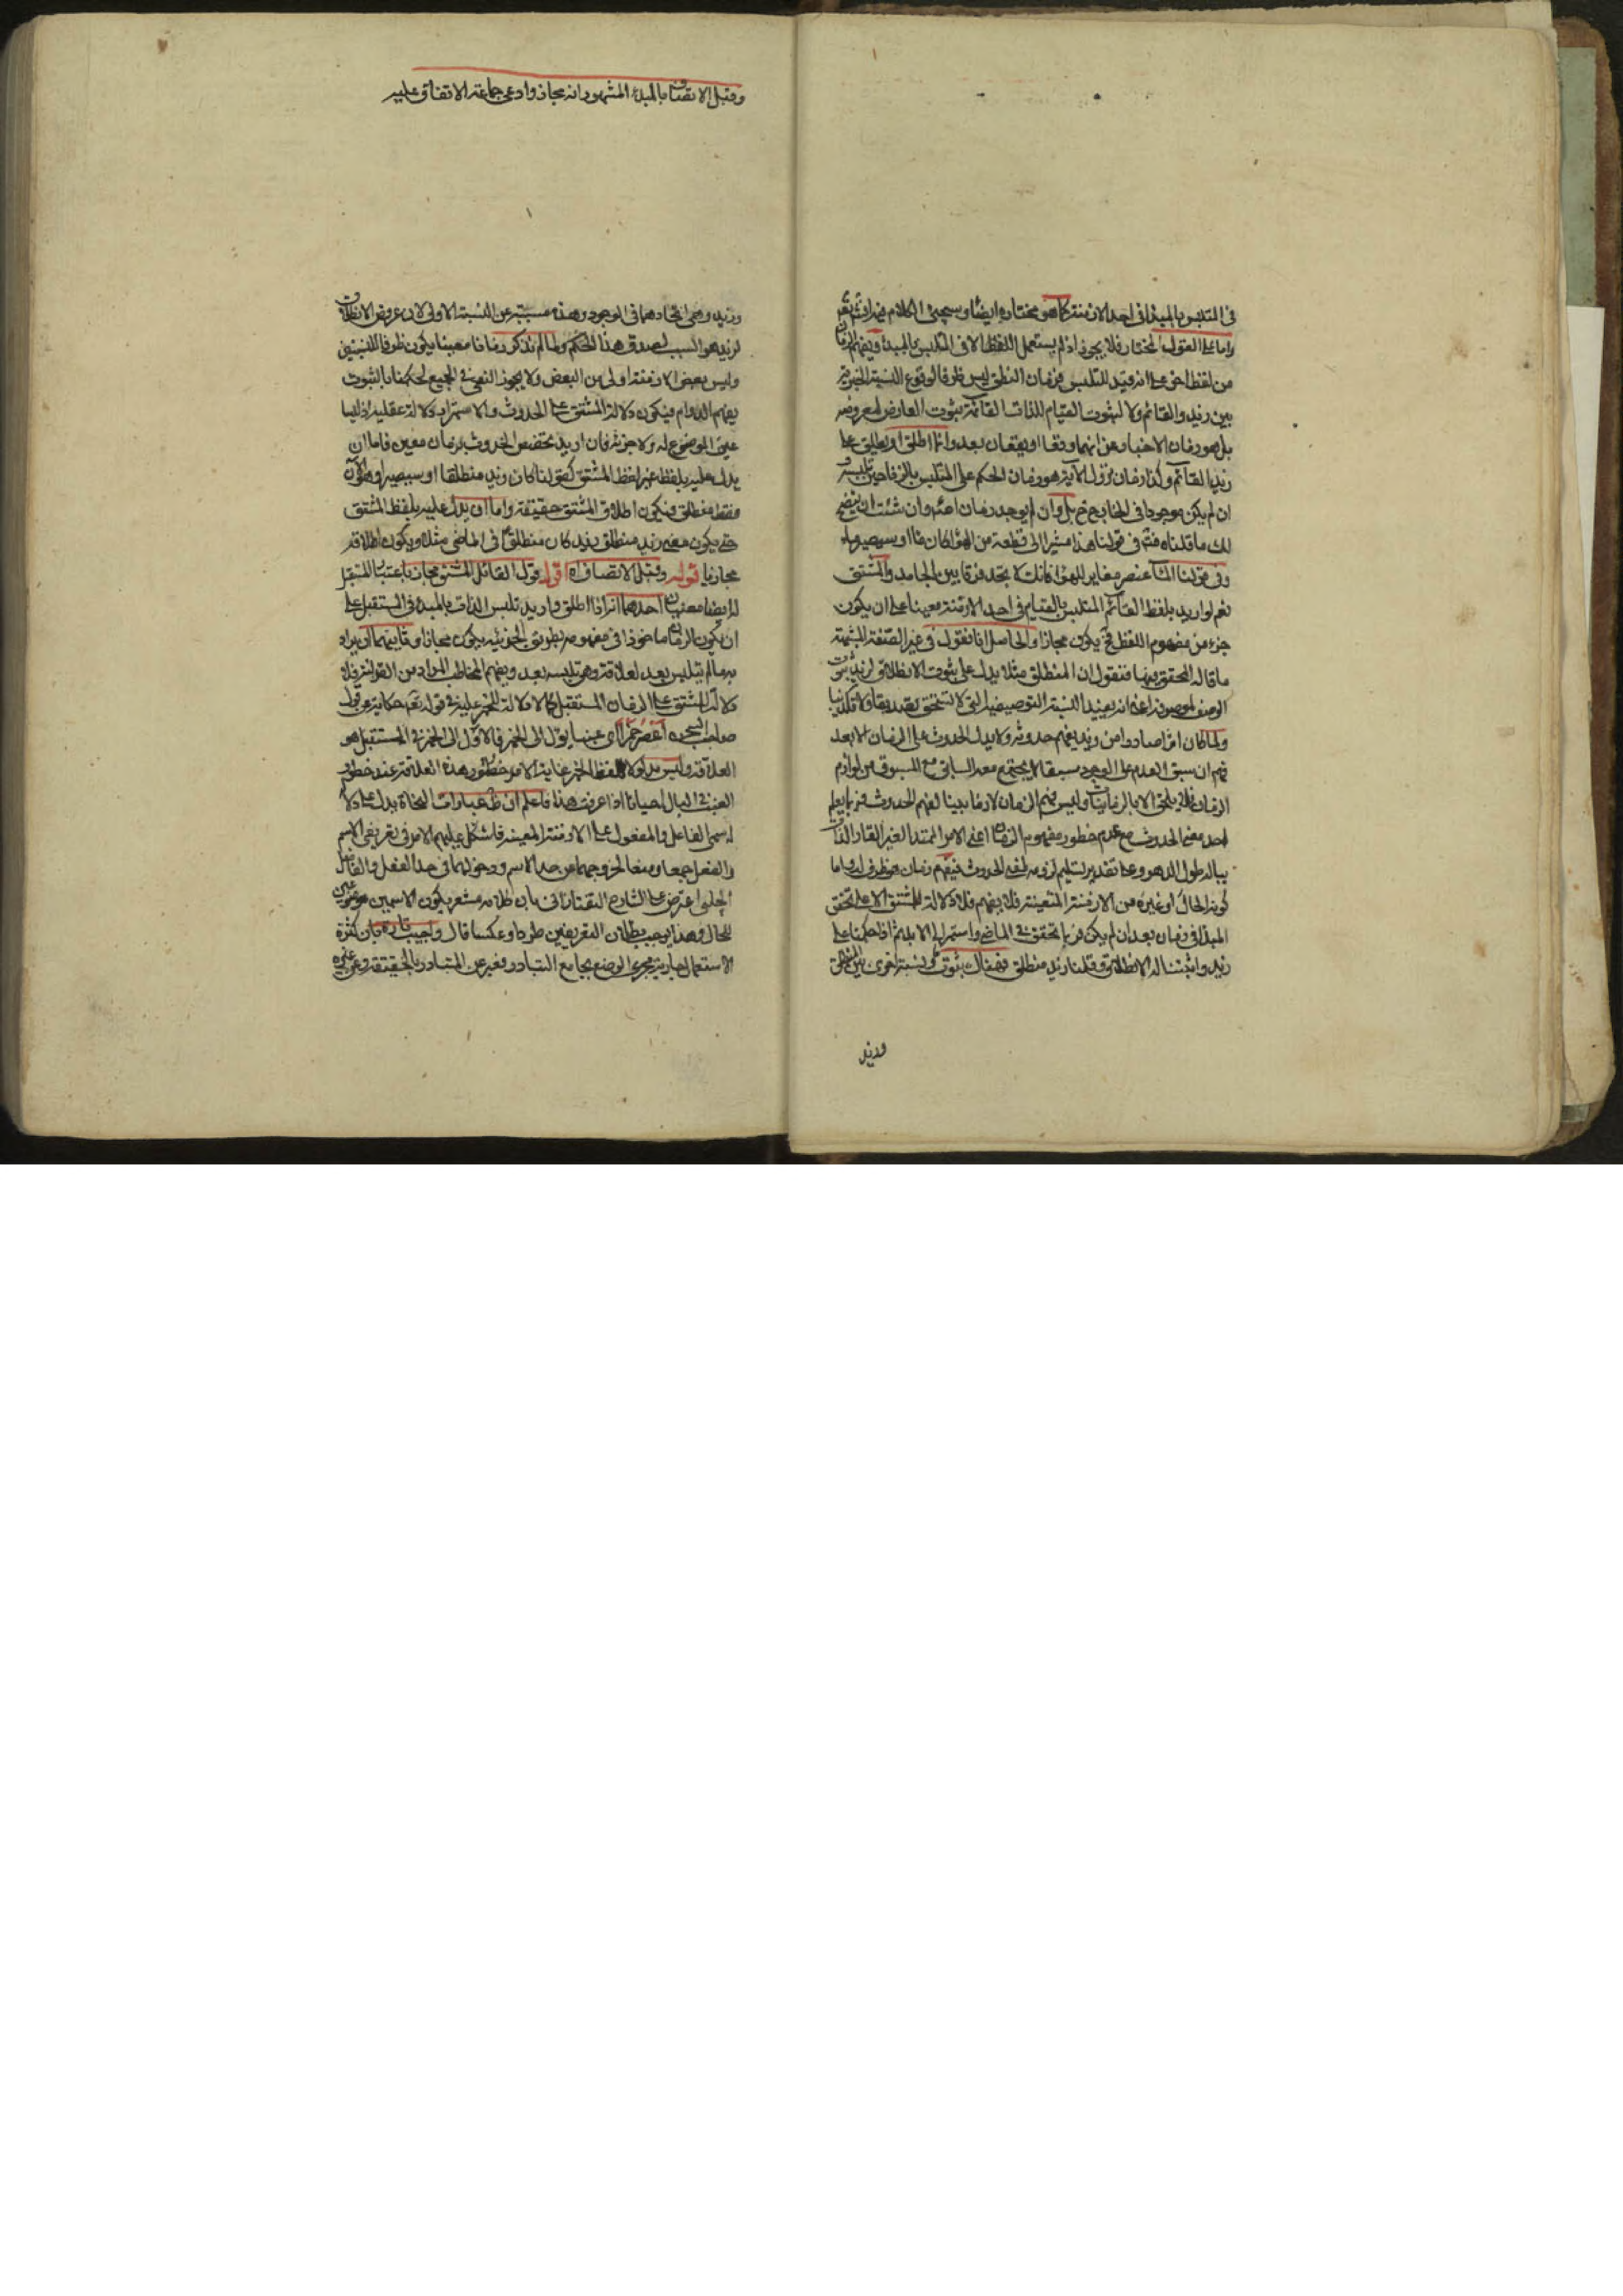 في المتلبس بالمبدأ في احد الازمنة كما هو مختاره ايضا وسيجئ الكلام فيه
واما على القول المختار فلا يجوز اذ لم يستعمل اللفظ الا في المتلبس بالمبدء ويفهم الزمان
من لفظ اخر على انه قيد للتلبس فزمان النطق ليس ظرفا لوقوع النسبة الخبرية
بين زيد والقائم ولا لثبوت القيام للذات القائمة بثبوت العارض لمعروضه
بل هو زمان الاخبار عن انهما وقعا او يقعان بعد وانما اطلق او يطلق على
زيد القائم وكذا زمان نزول الآية هو زمان الحكم على المتلبس بالزنا حين تلبسه و
ان لم يكن موجودا في الخارج ح بل وان لم يوجد زمان وان شئت ان يتضح
لك ما قلناه فتم في قولنا هذا مشيرا الى قطعة من الهواء كان ماء او سيصير ماء
وفي قولنا الماء عنصر مغاير للهواء فانك لا تجد فرقا بين الجامد والمشتق
نعم لو اريد بلفظ القائم المتلبس بالقيام في احد الازمنة معينا على ان يكون
جزء من مفهوم اللفظ فح يكون مجازا والحاصل انا نقول في غير الصفة المشبهة
ما قاله المحقق فيها فنقول ان المنطلق مثلا يدل على ثبوت الانطلاق لزيد ثبوت
الوصف لموصوفه اعني انه يفيد النسبة التوصيفية التي لا تستحق تصديقا ولا تكذيبا
ولما كان امرا صادرا من زيد يفهم حدوثه ولا يدل الحدوث على الزمان الا بعد
فهم ان سبق العدم على الوجود سبقا لا يجتمع معه السابق مع المسبوق من لوازم
الزمان فلا يلحق الا بالزمانيات وليس فهم الزمان لازما بينا لفهم الحدوث فربما يعلم
احد معنى الحدوث مع عدم خطور مفهوم الزمان اعني الامر الممتد الغير القار الذات
بباله طول الدهر وعلى تقدير تسليم لزومه لمعنى الحدوث فيفهم زمان هو ظرف له واما
كونه الحال او غيره من الازمنة المتعينة فلا يفهم فلا دلالة للمشتق الا على تحقق
المبدأ في زمان بعد ان لم يكن فربما تحقق في الماضي واستمر الى الابد ثم اذا حكمنا على
زيد واثبتنا له الانطلاق وقلنا زيد منطلق فهناك ثبوت ونسبة اخرى بين المنطلق
وزيد
وقبل الاتصاف بالمبدء المشهور انه مجاز وادعى جماعة الاتفاق عليه
وزيد وهي اتحادهما في الوجود وهذه مسببة عن النسبة الاولى لان عروض الانطلاق
لزيد هو السبب لصدق هذا الحكم ولما لم نذكر زمانا معينا يكون ظرفا للنسبتين
وليس بعض الازمنة اولى من البعض ولا يجوز النفي في الجميع لحكمنا بالثبوت
يفهم الدوام فيكون دلالة المشتق على الحدوث والاستمرار دلالة عقلية اذ ليسا
عين الموضوع له ولا جزئه فان اريد تخصص الحدوث بزمان معين فاما ان
يدل عليه بلفظ غير لفظ المشتق كقولنا كان زيد منطلقا او سيصير او هو الآن
فقط منطلق فيكون اطلاق المشتق حقيقة واما ان يدل عليه بلفظ المشتق
حتى يكون معنى زيد منطلق زيد كان منطلقا في الماضي مثلا ويكون اطلاقه
مجازيا قوله وقبل الاتصاف اه اقول قول القائل المشتق مجاز باعتبار المستقبل
له ايضا معنيان احدهما انه اذا اطلق واريد تلبس الذات بالمبدء في المستقبل على
ان يكون الزمان ماخوذا في مفهومه بطريق الجزئية يكون مجازا وثانيهما ان يراد
به ما لم يتلبس بعد لعلاقة وهي تلبسه بعد ويفهم المخاطب المراد من القرائن فلا
دلالة للمشتق على الزمان المستقبل كما لا دلالة للخمر عليه في قوله تعم حكاية عن قول
صاحب السجن اعصر خمرا اي عنبا يؤل الى الخمر فالاول الى الخمر في المستقبل هو
العلاقة وليس مدلولا للفظ الخمر غاية الامر خطور هذه العلاقة عند خطور
العنب في البال احيانا اذا عرفت هذا فاعلم ان ظ عبارات النحاة يدل على دلا
لة اسمي الفاعل والمفعول على الازمنة المعينة فاشكل عليهم الامر في تعريفي الاسم
والفعل جمعا ومنعا لخروجهما عن حد الاسم ودخولهما في حد الفعل والفاضل
الچلبي اعترض على الشارح التفتازاني بان كلامه مشعر بكون الاسمين موضوعين
للحال وهذا يوجب بطلان التعريفين طردا وعكسا قال واجيب تارة بان كثرة
الاستعمال جارية مجرى الوضع بجامع التبادر فعبر عن المتبادر بالحقيقة وعن غيره